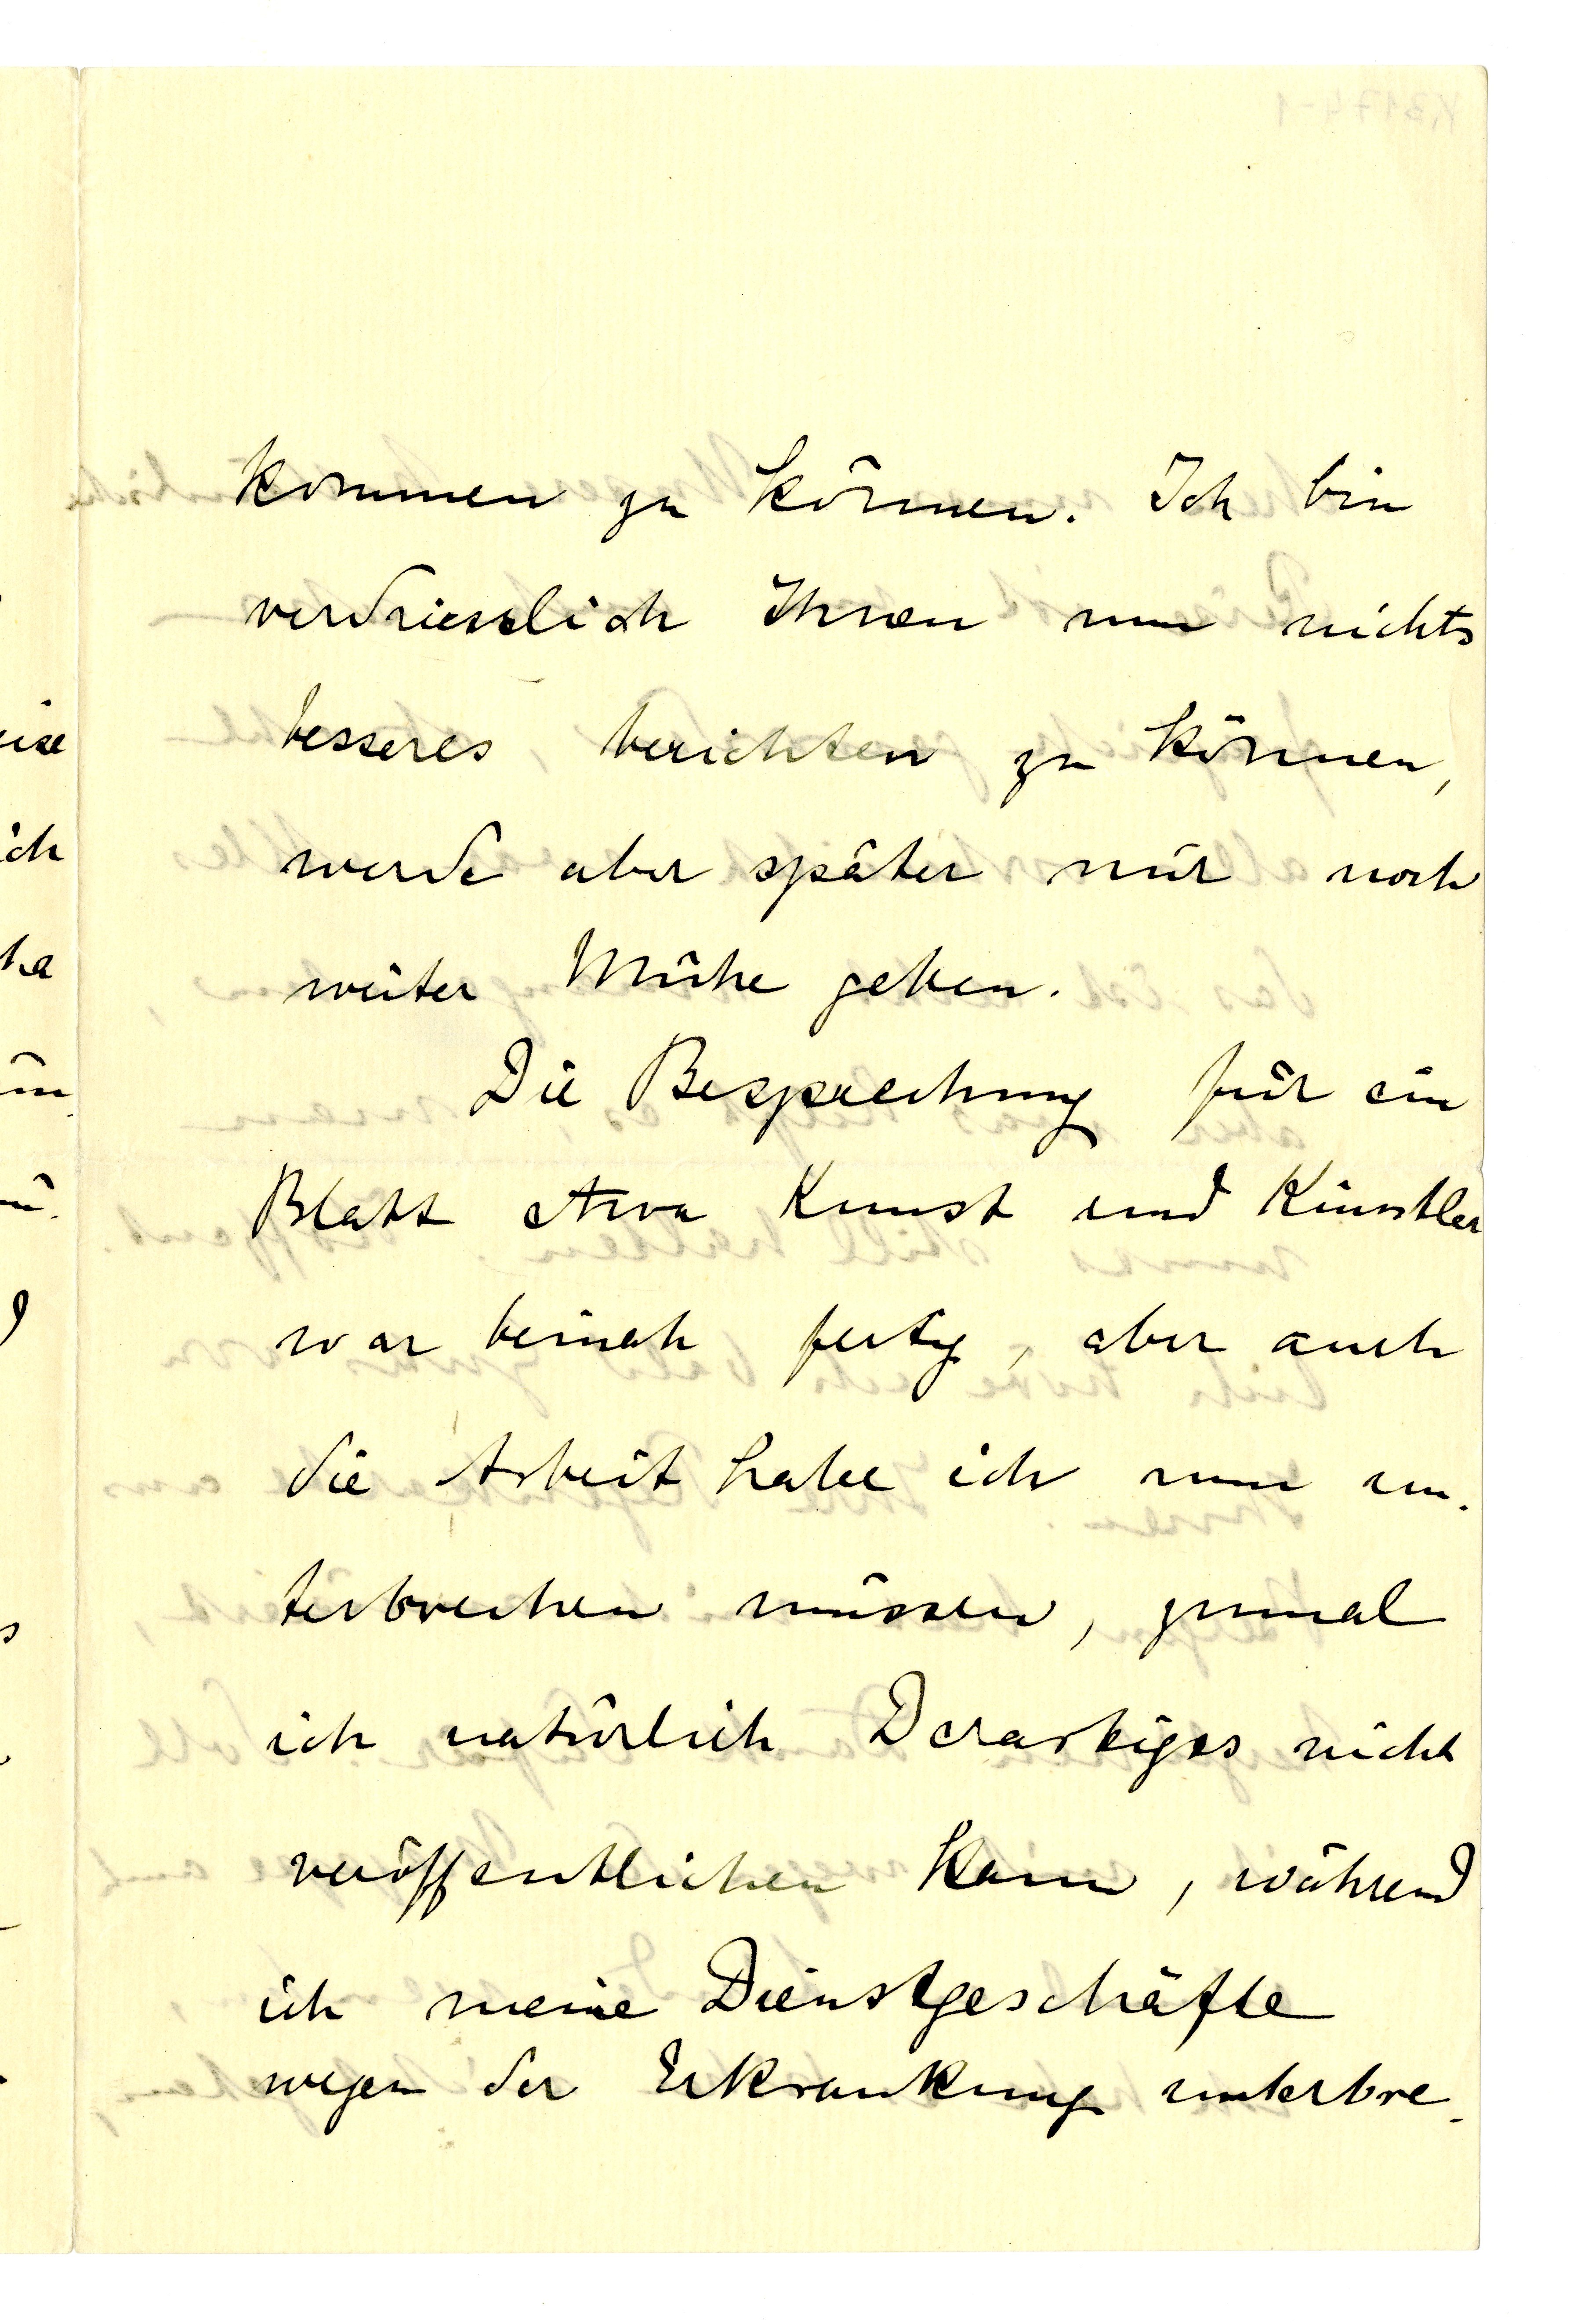 kommen zu können. Ich bin
verdriesslich Ihnen nun nichts
besseres berichten zu können,
werde aber später mir noch
weiter Mühe geben.
Die Besprechung für ein
Blatt etwa Kunst und Künstler
war beinah fertig, aber auch
die Arbeit habe ich nun un-
terbrechen müssen, zumal
ich natürlich Derartiges nicht
veröffentlichen kann, während
ich meine Dienstgeschäfte
wegen der Erkrankung unterbre-